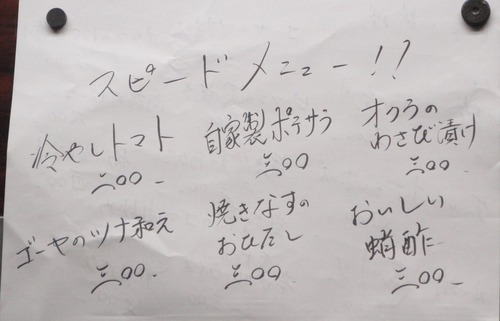 スピードメニュー!!
冷やしトマト
三00-
自家製ポテサラ
三00
オクラの
わさび漬け
三00-
ゴーヤのツナ和え
三00-
焼きなすの
おひたし
三00
おいしい
蛸酢
三00-